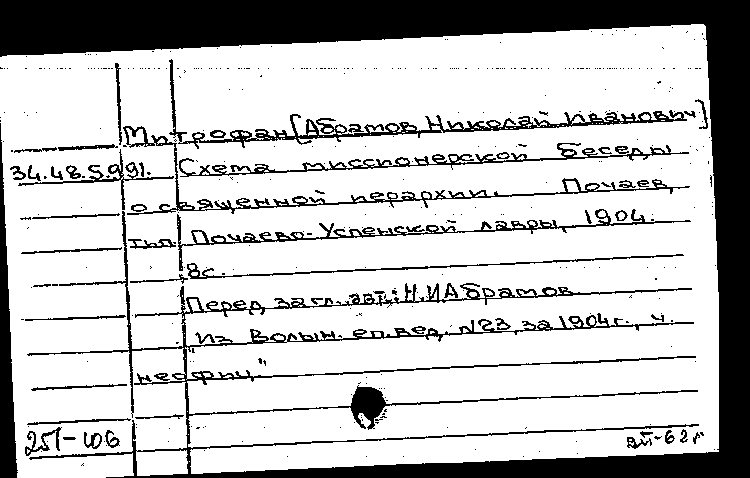 Митрофан [Абрамов, Николай Иванович]
34.48.5.991. Схема миссионерской беседы
о священной иерархии. Почаев,
тип. Почаево-Успенской лавры, 1904.
8с.
Перед загл. авт.: Н.И Абрамов
"Из Волын. еп. вед. №23, за 1904г., ч.
неофиц."
251-106